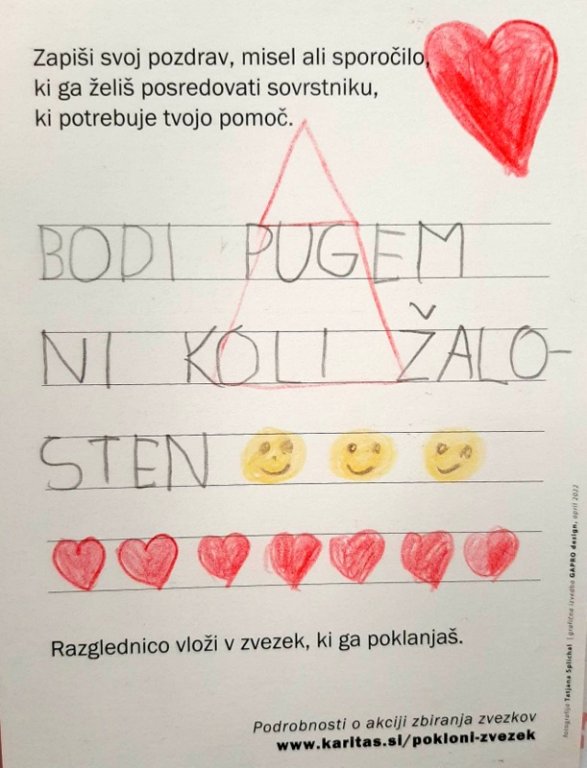 Zapiši svoj pozdrav, misel ali sporočilo,
ki ga želiš posredovati sovrstniku,
ki potrebuje tvojo pomoč.
BODI PUGEM
NI KOLI ŽALO-
STEN
Razglednico vloži v zvezek, ki ga poklanjaš.
Podrobnosti o akciji zbiranja zvezkov
www.karitas.si/pokloni-zvezek
fotografija Tatjana Splichal | grafična izvedba GAPRO design, april 2022